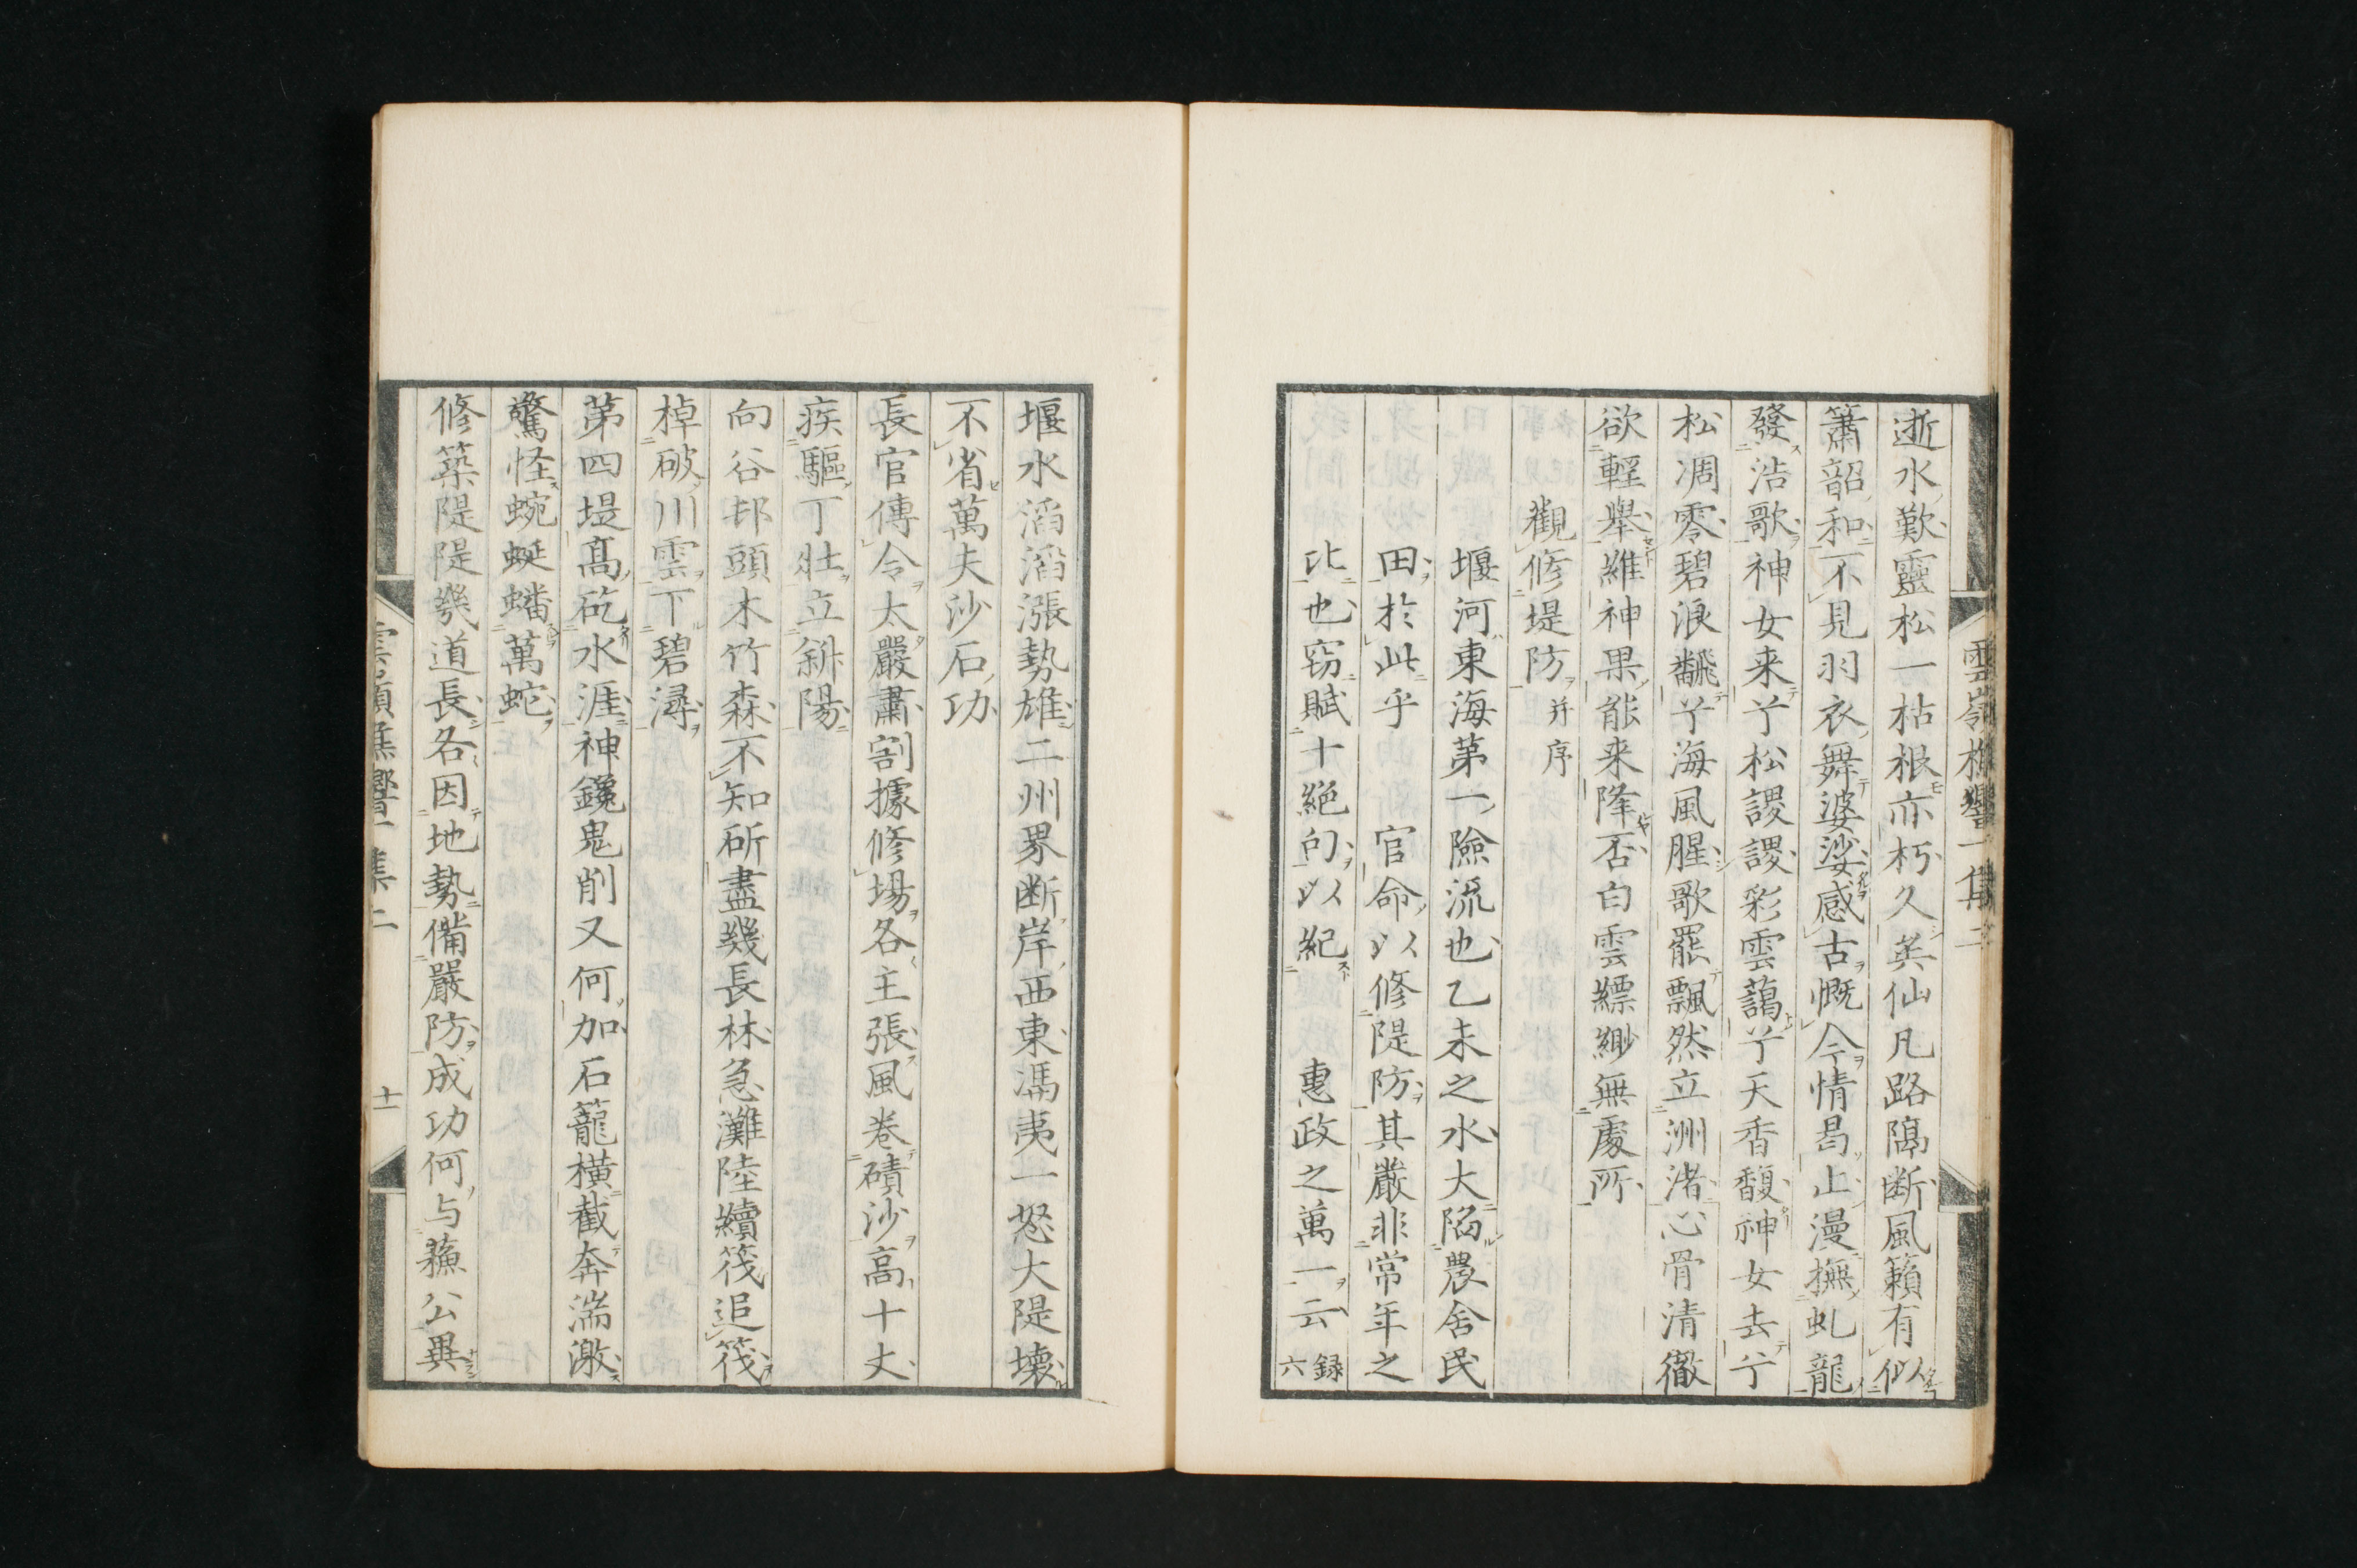 雲嶺樵響一集二
逝水歎靈松一枯根亦朽久矣仙凡路隔断風籟有似
簫韶和不見羽衣舞婆娑感古慨今情曷止漫撫虬龍
發浩歌神女来兮松謖謖彩雲藹兮天香馥神女去兮
松凋零碧浪飜兮海風腥歌罷飄然立洲渚心骨清徹
欲輕舉維神果能来降否白雲縹緲無處所
觀修堤防并序
堰河東海第一險流也乙未之水大陷農舍民
田於此乎　官命以修隄防其嚴非常年之
比也窃賦十絶句以紀　惠政之萬一云 録六
堰水滔滔漲勢雄二州界断岸西東馮夷一怒大隄壊
不省萬夫沙石功
長官傳令太嚴肅割據修場各主張風巻磧沙高十丈
疾驅丁壮立斜陽
向谷邨頭木竹森不知斫盡幾長林急灘陸續筏追筏
棹破川雲下碧潯
第四堤高矻水涯神鑱鬼削又何加石籠横截奔湍激
驚怪蜿蜒蟠萬蛇
修築隄隄幾道長各因地勢備嚴防成功何与蘓公異
雲嶺樵響一集二
十一